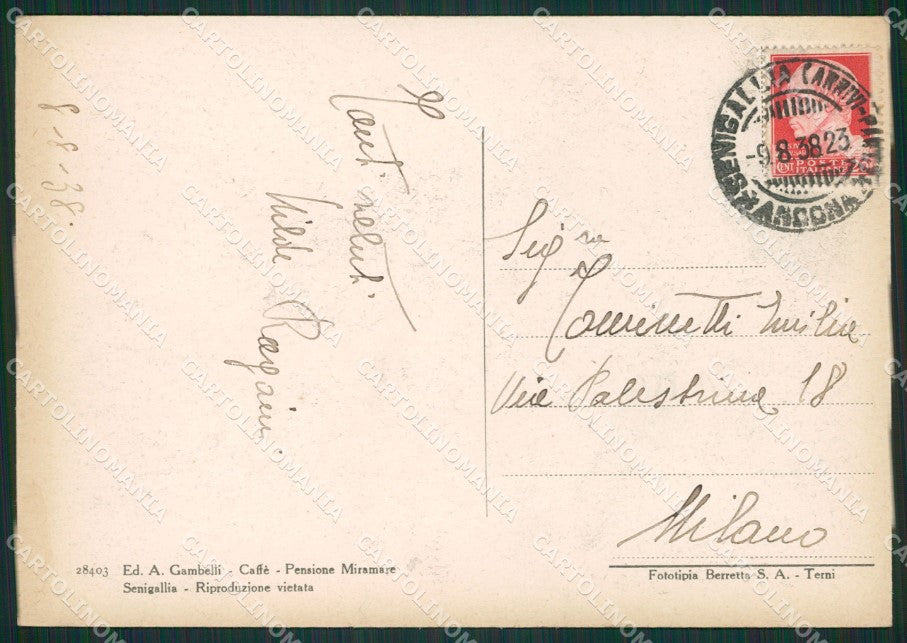 8-8-38.
Tanti saluti
Milde Ragaini
Sig.ra
Tominetti Emilia
Via Palestrina 18
Milano
SENIGALLIA (ARRIVI-PARTENZE)
ANCONA
-9.8.38 23
POSTE
ITALIANE
CENT
28403 Ed. A. Gambelli - Caffè - Pensione Miramare
Senigallia - Riproduzione vietata
Fototipia Berretta S. A. - Terni
CARTOLINOMANIA